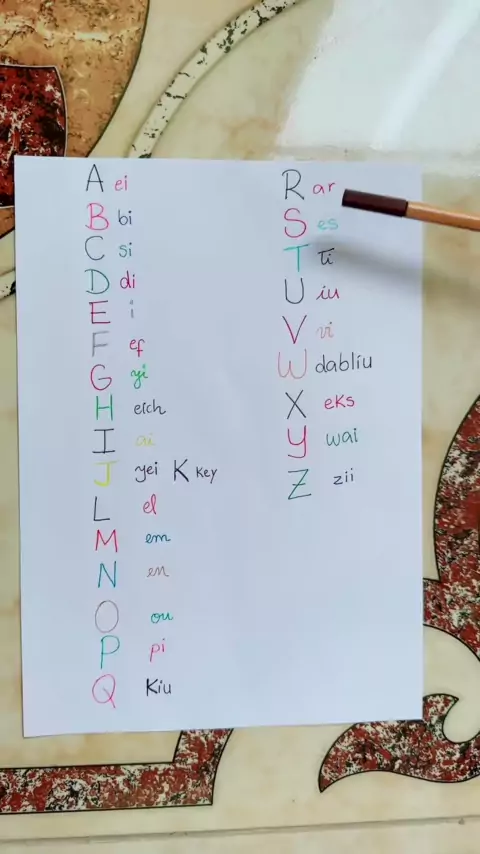 A ei
B bi
C si
D di
E i
F ef
G yi
H eich
I ai
J yei K key
L el
M em
N en
O ou
P pi
Q Kiu
R ar
S es
T ti
U iu
V vi
W dabliu
X eks
Y wai
Z zii